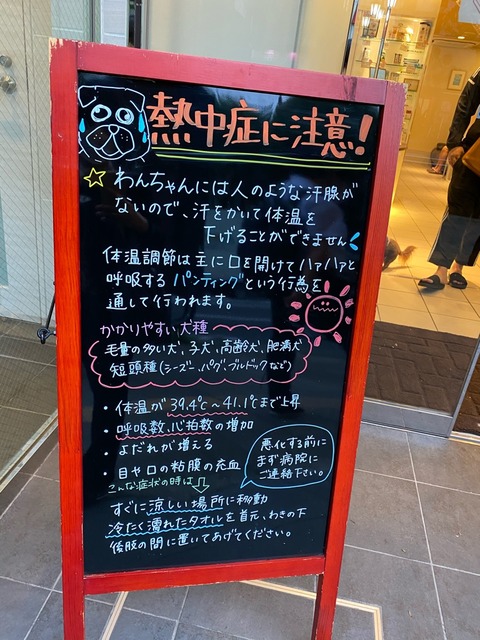 熱中症に注意!
わんちゃんには人のような汗腺が
ないので、汗をかいて体温を
下げることができません
体温調節は主に口を開けてハァハァと
呼吸するパンティングという行為を
通して行われます。
かかりやすい犬種
毛量の多い犬、子犬、高齢犬、肥満犬
短頭種(シーズー、パグ、ブルドックなど)
・体温が39.4℃~41.1℃まで上昇
・呼吸数、心拍数の増加
・よだれが増える
・目や口の粘膜の充血
悪化する前に
まず病院に
ご連絡下さい。
こんな症状の時は
すぐに涼しい場所に移動
冷たく濡れたタオルを首元、わきの下
後肢の間に置いてあげてください。